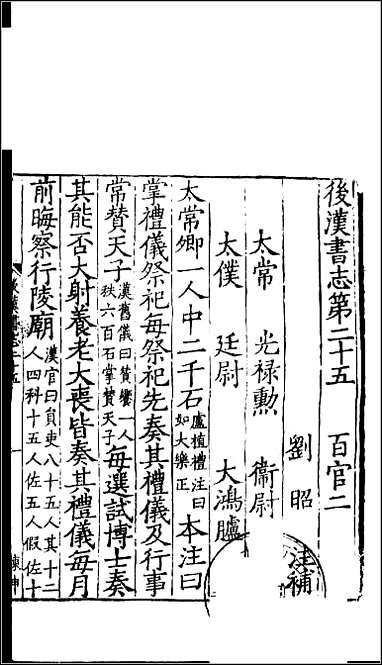 後漢書志第二十五 百官二
劉昭 注補
太常 光祿勳 衞尉
太僕 廷尉 大鴻臚
太常卿一人中二千石盧植禮注曰如大樂正本注曰
掌禮儀祭祀每祭祀先奏其禮儀及行事
常贊天子漢舊儀曰贊饗一人秩六百石掌贊天子每選試博士奏
其能否大射養老大喪皆奏其禮儀每月
前晦察行陵廟漢官曰員吏八十五人其十二人四科十五人佐五人假佐十